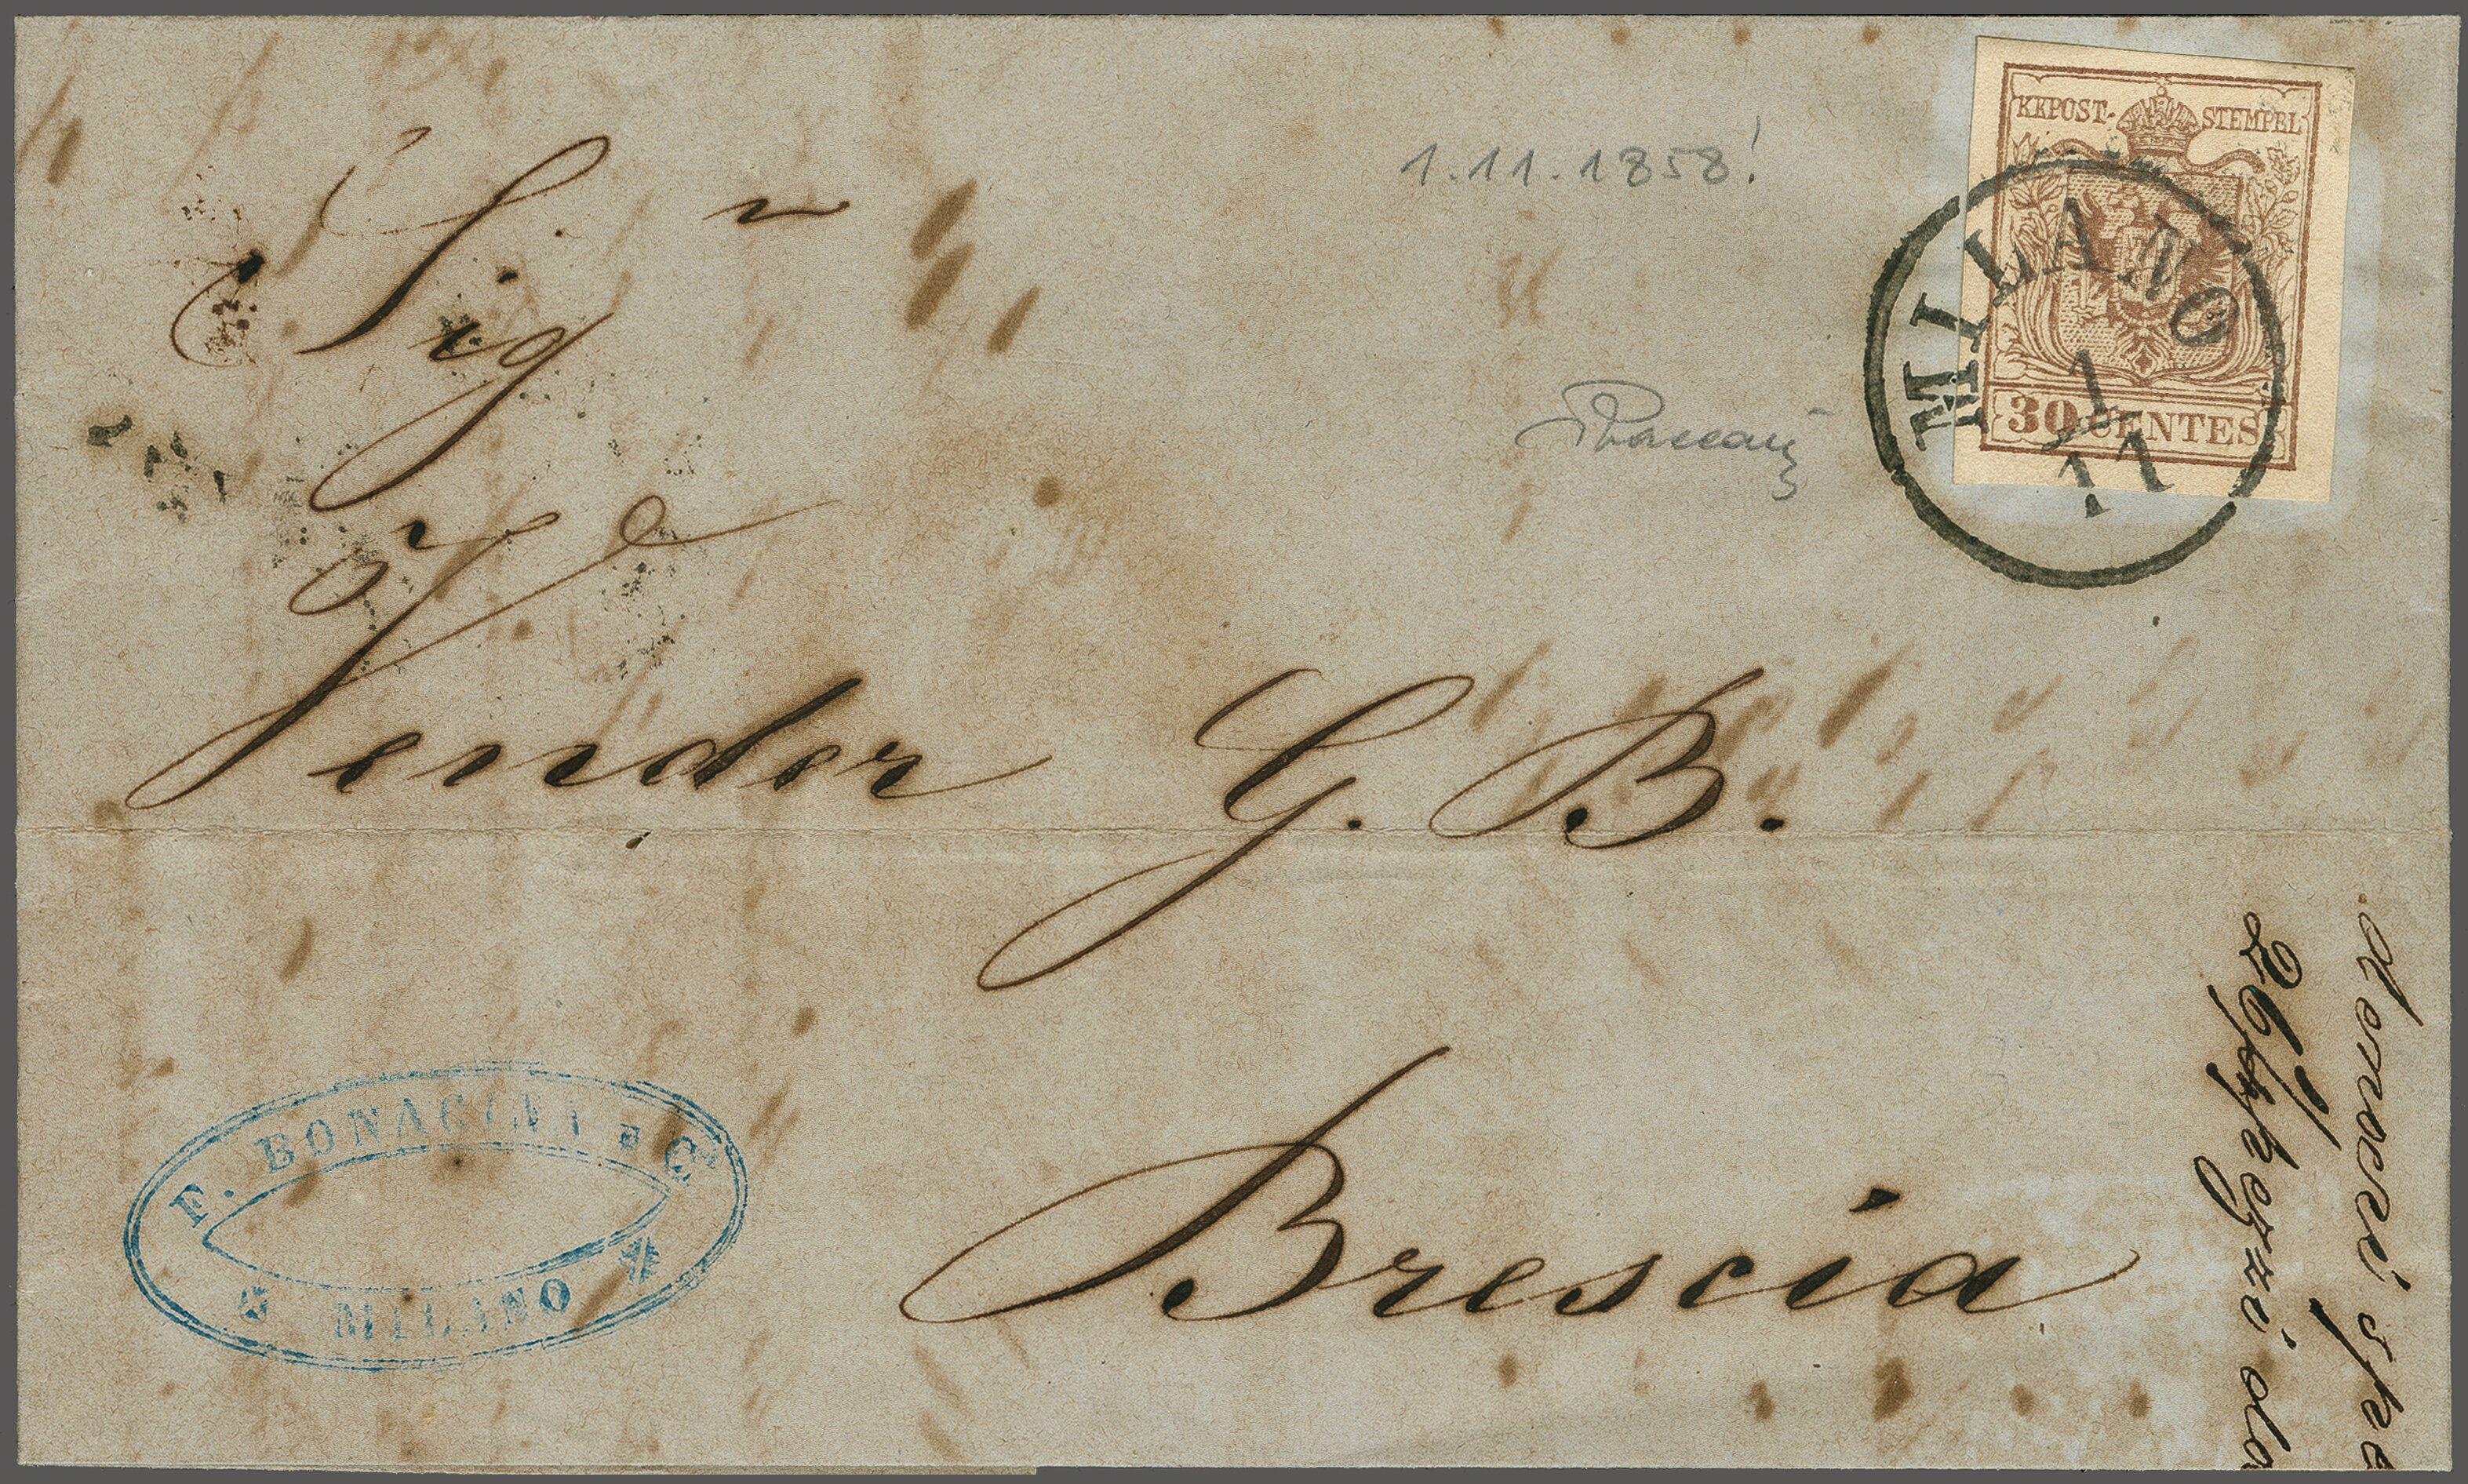 KKPOST-STEMPEL
30 CENTES
MILANO
1
11
1.11.1858!
Sig r
Vender G. B.
Brescia
F. BONACINI e C.
MILANO